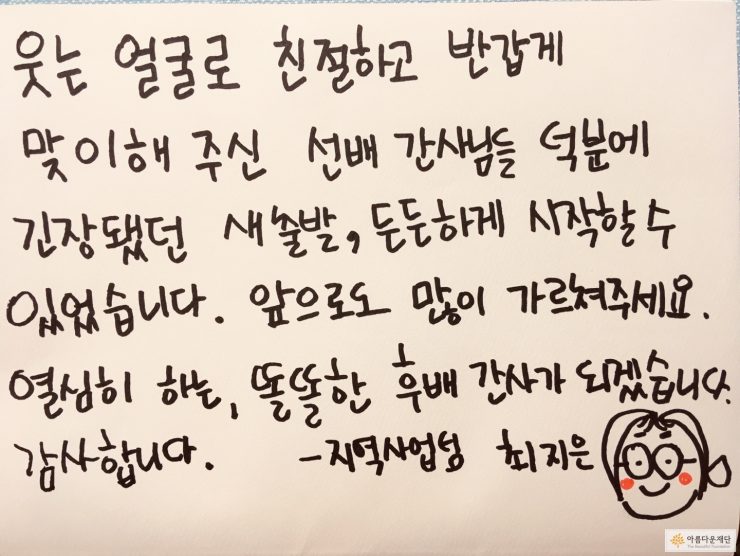 웃는 얼굴로 친절하고 반갑게
맞이해 주신 선배 간사님들 덕분에
긴장됐던 새출발, 든든하게 시작할 수
있었습니다. 앞으로도 많이 가르쳐주세요.
열심히 하는, 똘똘한 후배 간사가 되겠습니다.
감사합니다. -지역사업팀 최지은
아름다운재단
The Beautiful Foundation